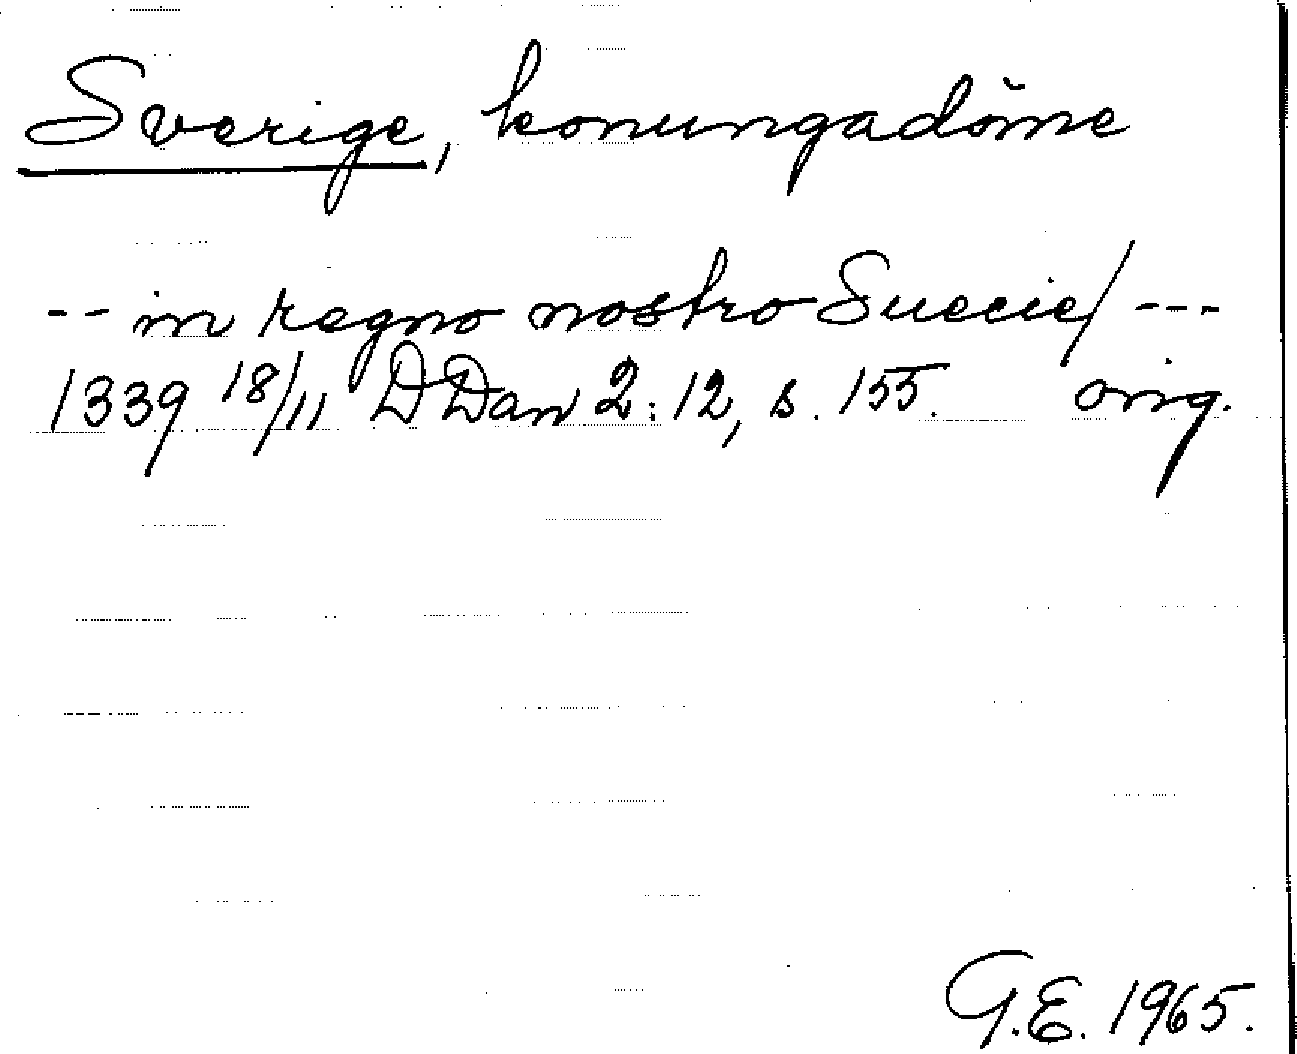 Sverige, konungadöme
-- in regno nostro Suecie/ ---
1339 18/11 DDan 2:12, s. 155. orig.
G.E. 1965.